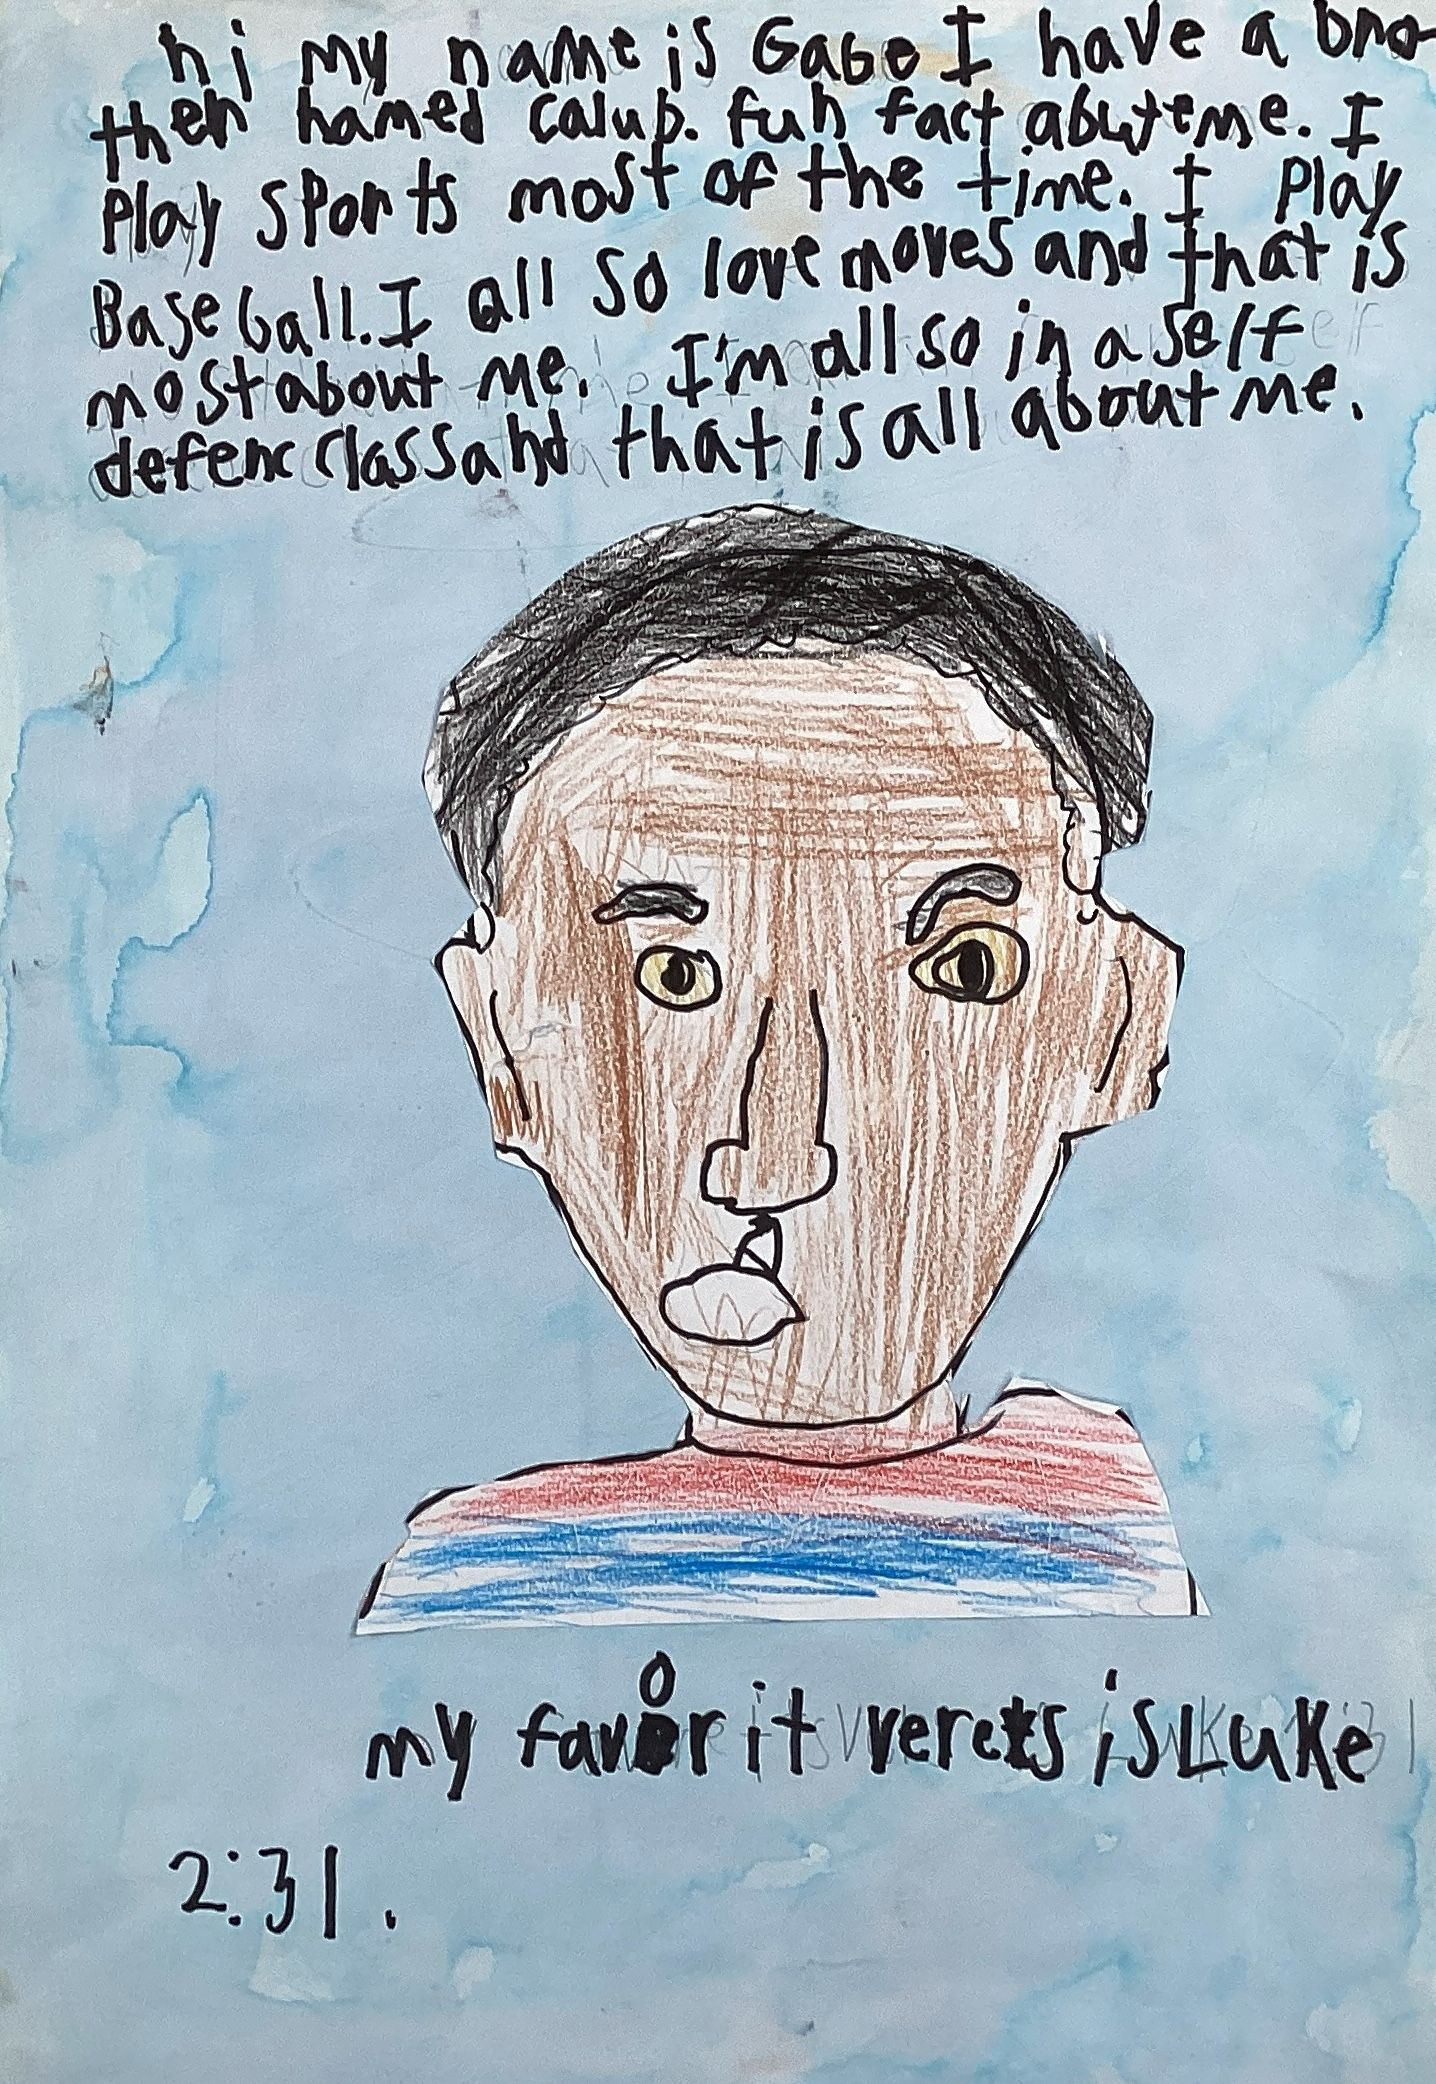 hi my name is Gabe I have a bro-
ther named calub. fun fact abute me. I
Play sports most of the time. I Play
Base ball. I all so love moves and that is
most about me. I'm all so in a self
defenc class and that is all about me.
my favorit verets is Luke
2:31.